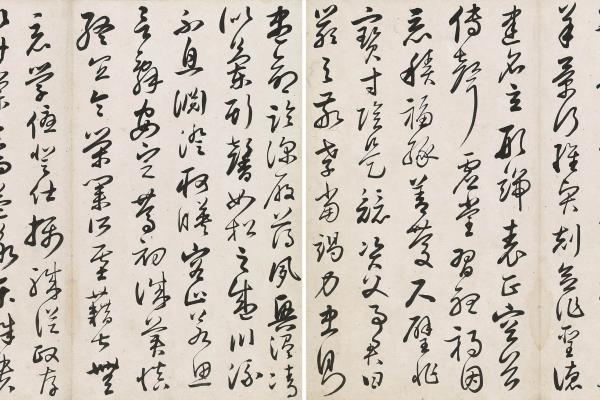 羊景行維賢剋念作聖德
建名立形端表正空谷
傳聲虛堂習聽禍因
惡積福緣善慶尺璧非
寶寸陰是競資父事君曰
嚴與敬孝當竭力忠則
盡命臨深履薄夙興溫凊
似蘭斯馨如松之盛川流
不息淵澄取映容止若思
言辭安定篤初誠美慎
終宜令榮業所基藉甚無
竟學優登仕攝職從政存
以甘棠去而益詠樂殊貴